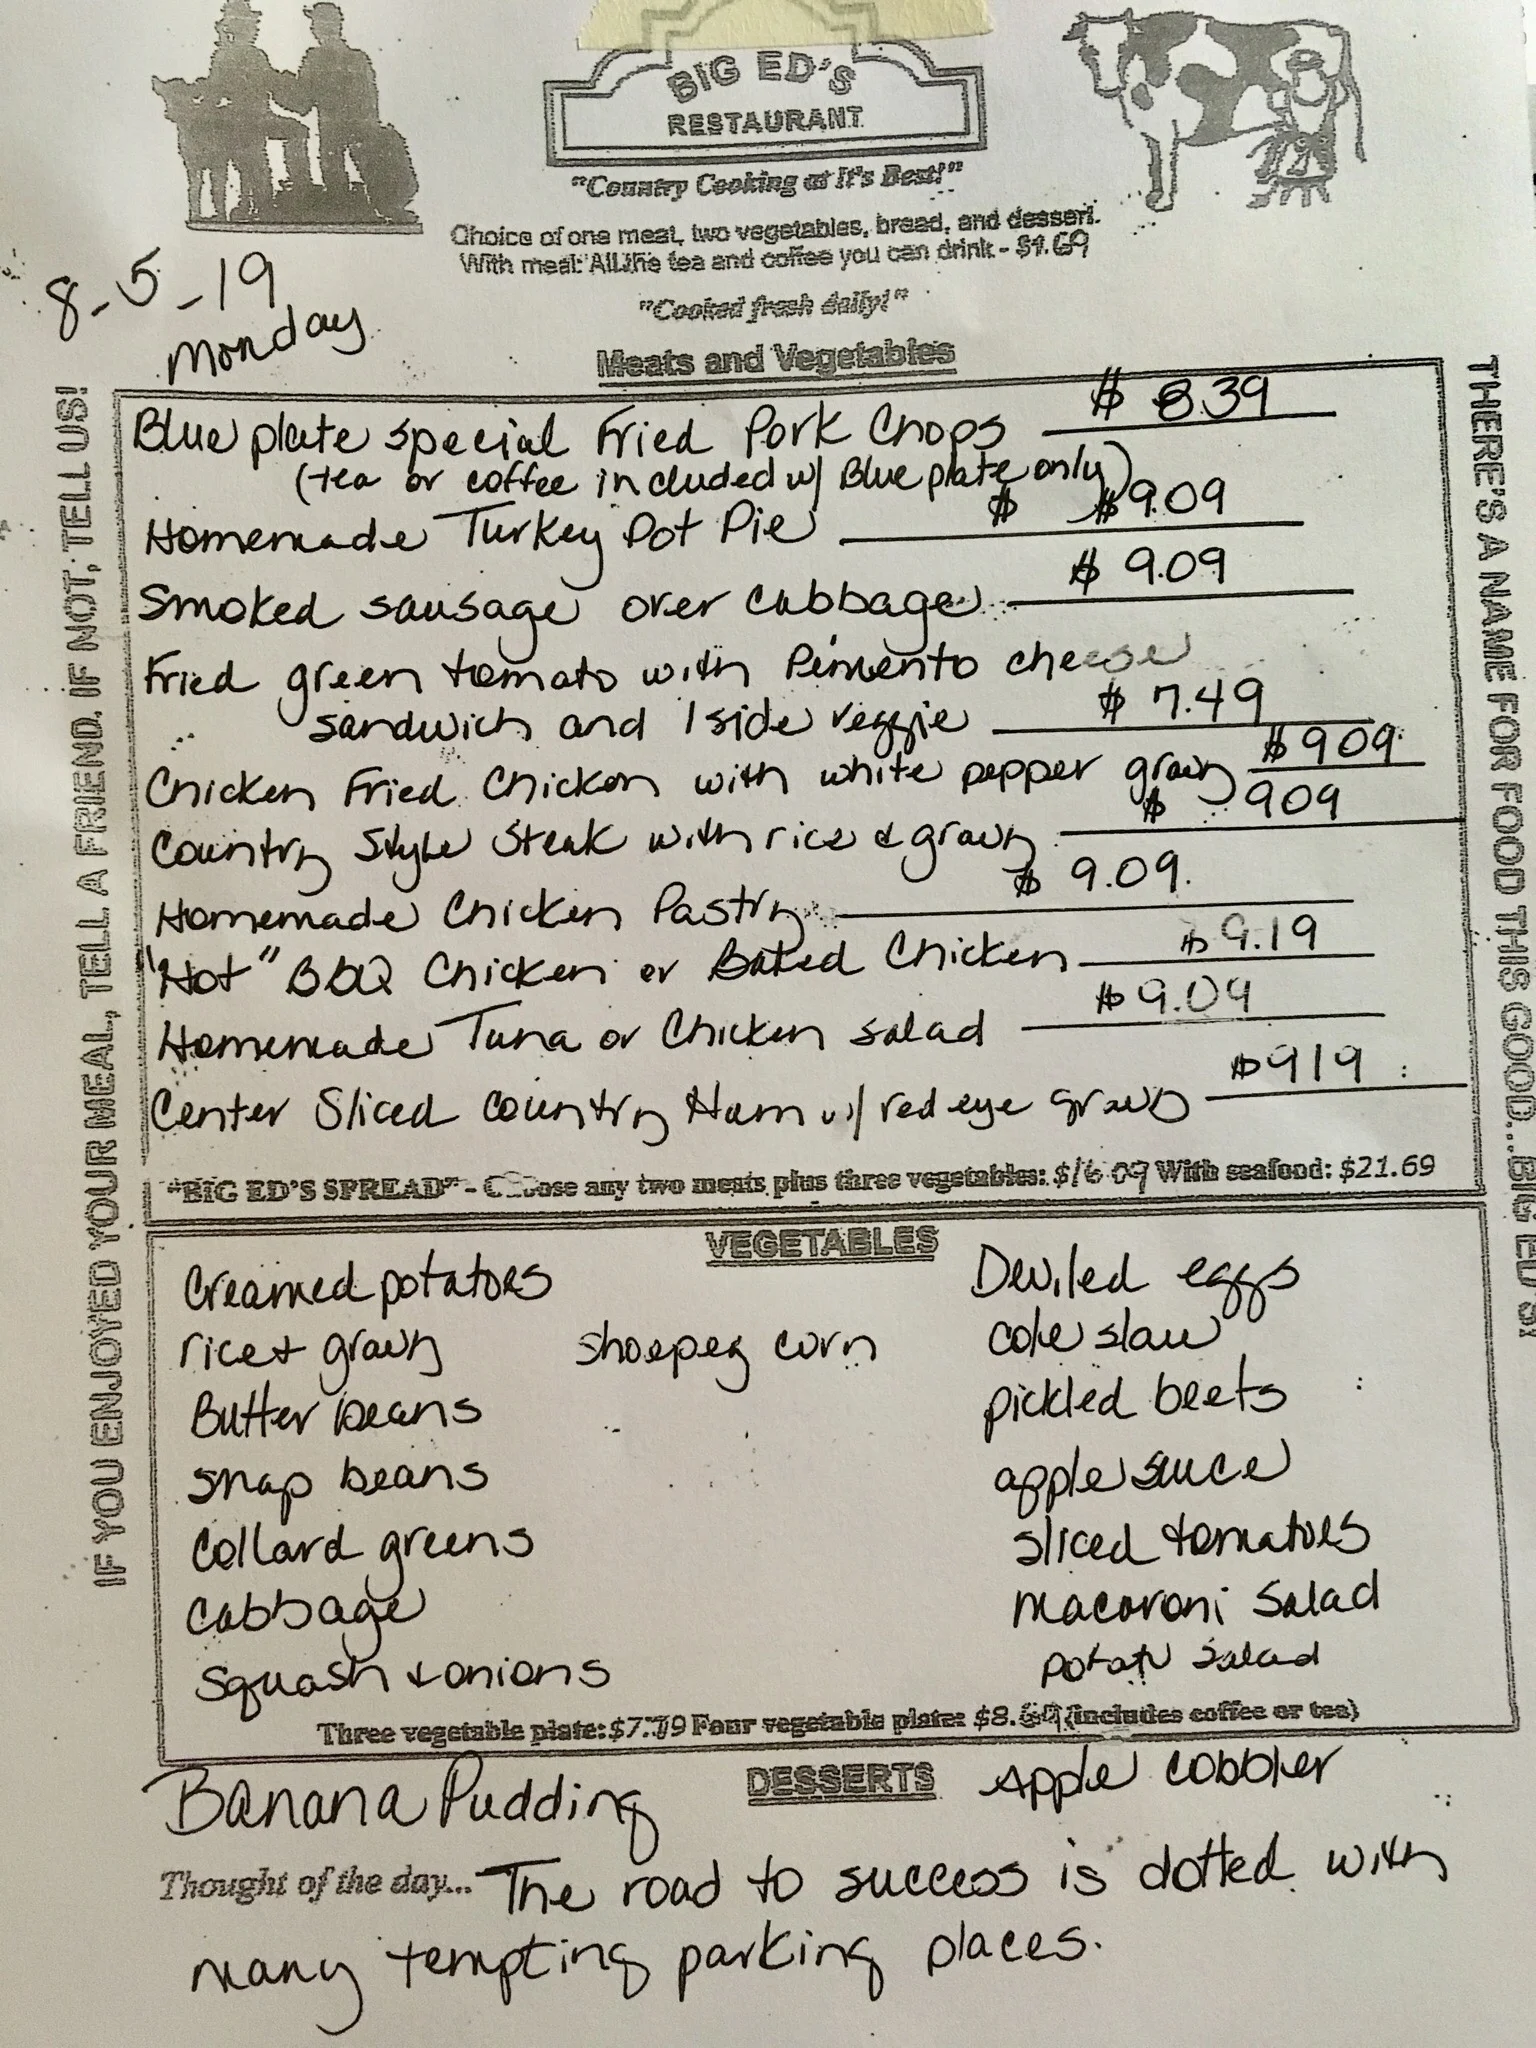 BIG ED'S
RESTAURANT
"Country Cooking at It's Best!"
Choice of one meat, two vegetables, bread, and dessert.
With meal: All the tea and coffee you can drink - $1.69
"Cooked fresh daily!"
8-5-19
Monday
Meats and Vegetables
Blue plate special Fried Pork Chops $ 8.39
(tea or coffee included w/ Blue plate only)
Homemade Turkey Pot Pie $ $9.09
Smoked sausage over cabbage $ 9.09
Fried green tomato with Pimento cheese
sandwich and 1 side veggie $ 7.49
Chicken Fried Chicken with white pepper gravy $909
Country Style Steak with rice & gravy $ 909
Homemade Chicken Pastry $ 9.09.
"Hot" BBQ Chicken or Baked Chicken $9.19
Homemade Tuna or Chicken salad $9.09
Center Sliced Country Ham w/ red eye gravy $919
"BIG ED'S SPREAD" - Choose any two meats plus three vegetables: $16.09 With seafood: $21.69
IF YOU ENJOYED YOUR MEAL, TELL A FRIEND. IF NOT, TELL US!
THERE'S A NAME FOR FOOD THIS GOOD...BIG ED'S!
VEGETABLES
Creamed potatoes
rice + gravy
Butter beans
snap beans
Collard greens
Cabbage
Squash + onions
shoepeg corn
Deviled eggs
cole slaw
pickled beets
apple sauce
sliced tomatoes
macaroni salad
potato salad
Three vegetable plate: $7.79 Four vegetable plate: $8. (includes coffee or tea)
DESSERTS
Banana Pudding
Apple cobbler
Thought of the day... The road to success is dotted with
many tempting parking places.